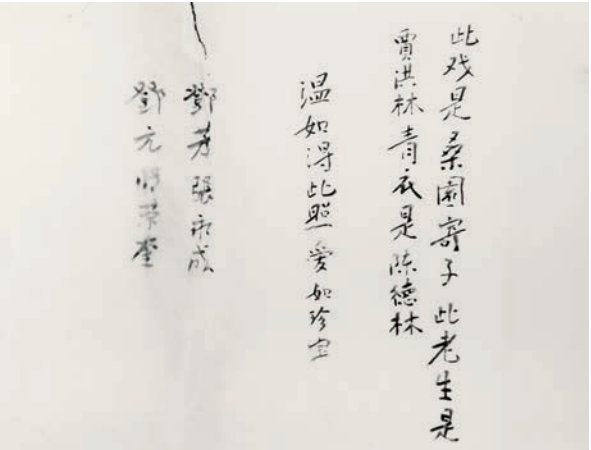 此戏是桑園寄子此老生是
賈洪林青衣是陈德林
温如得此照愛如珍宝
鄧芳張永成
鄧元荣奎